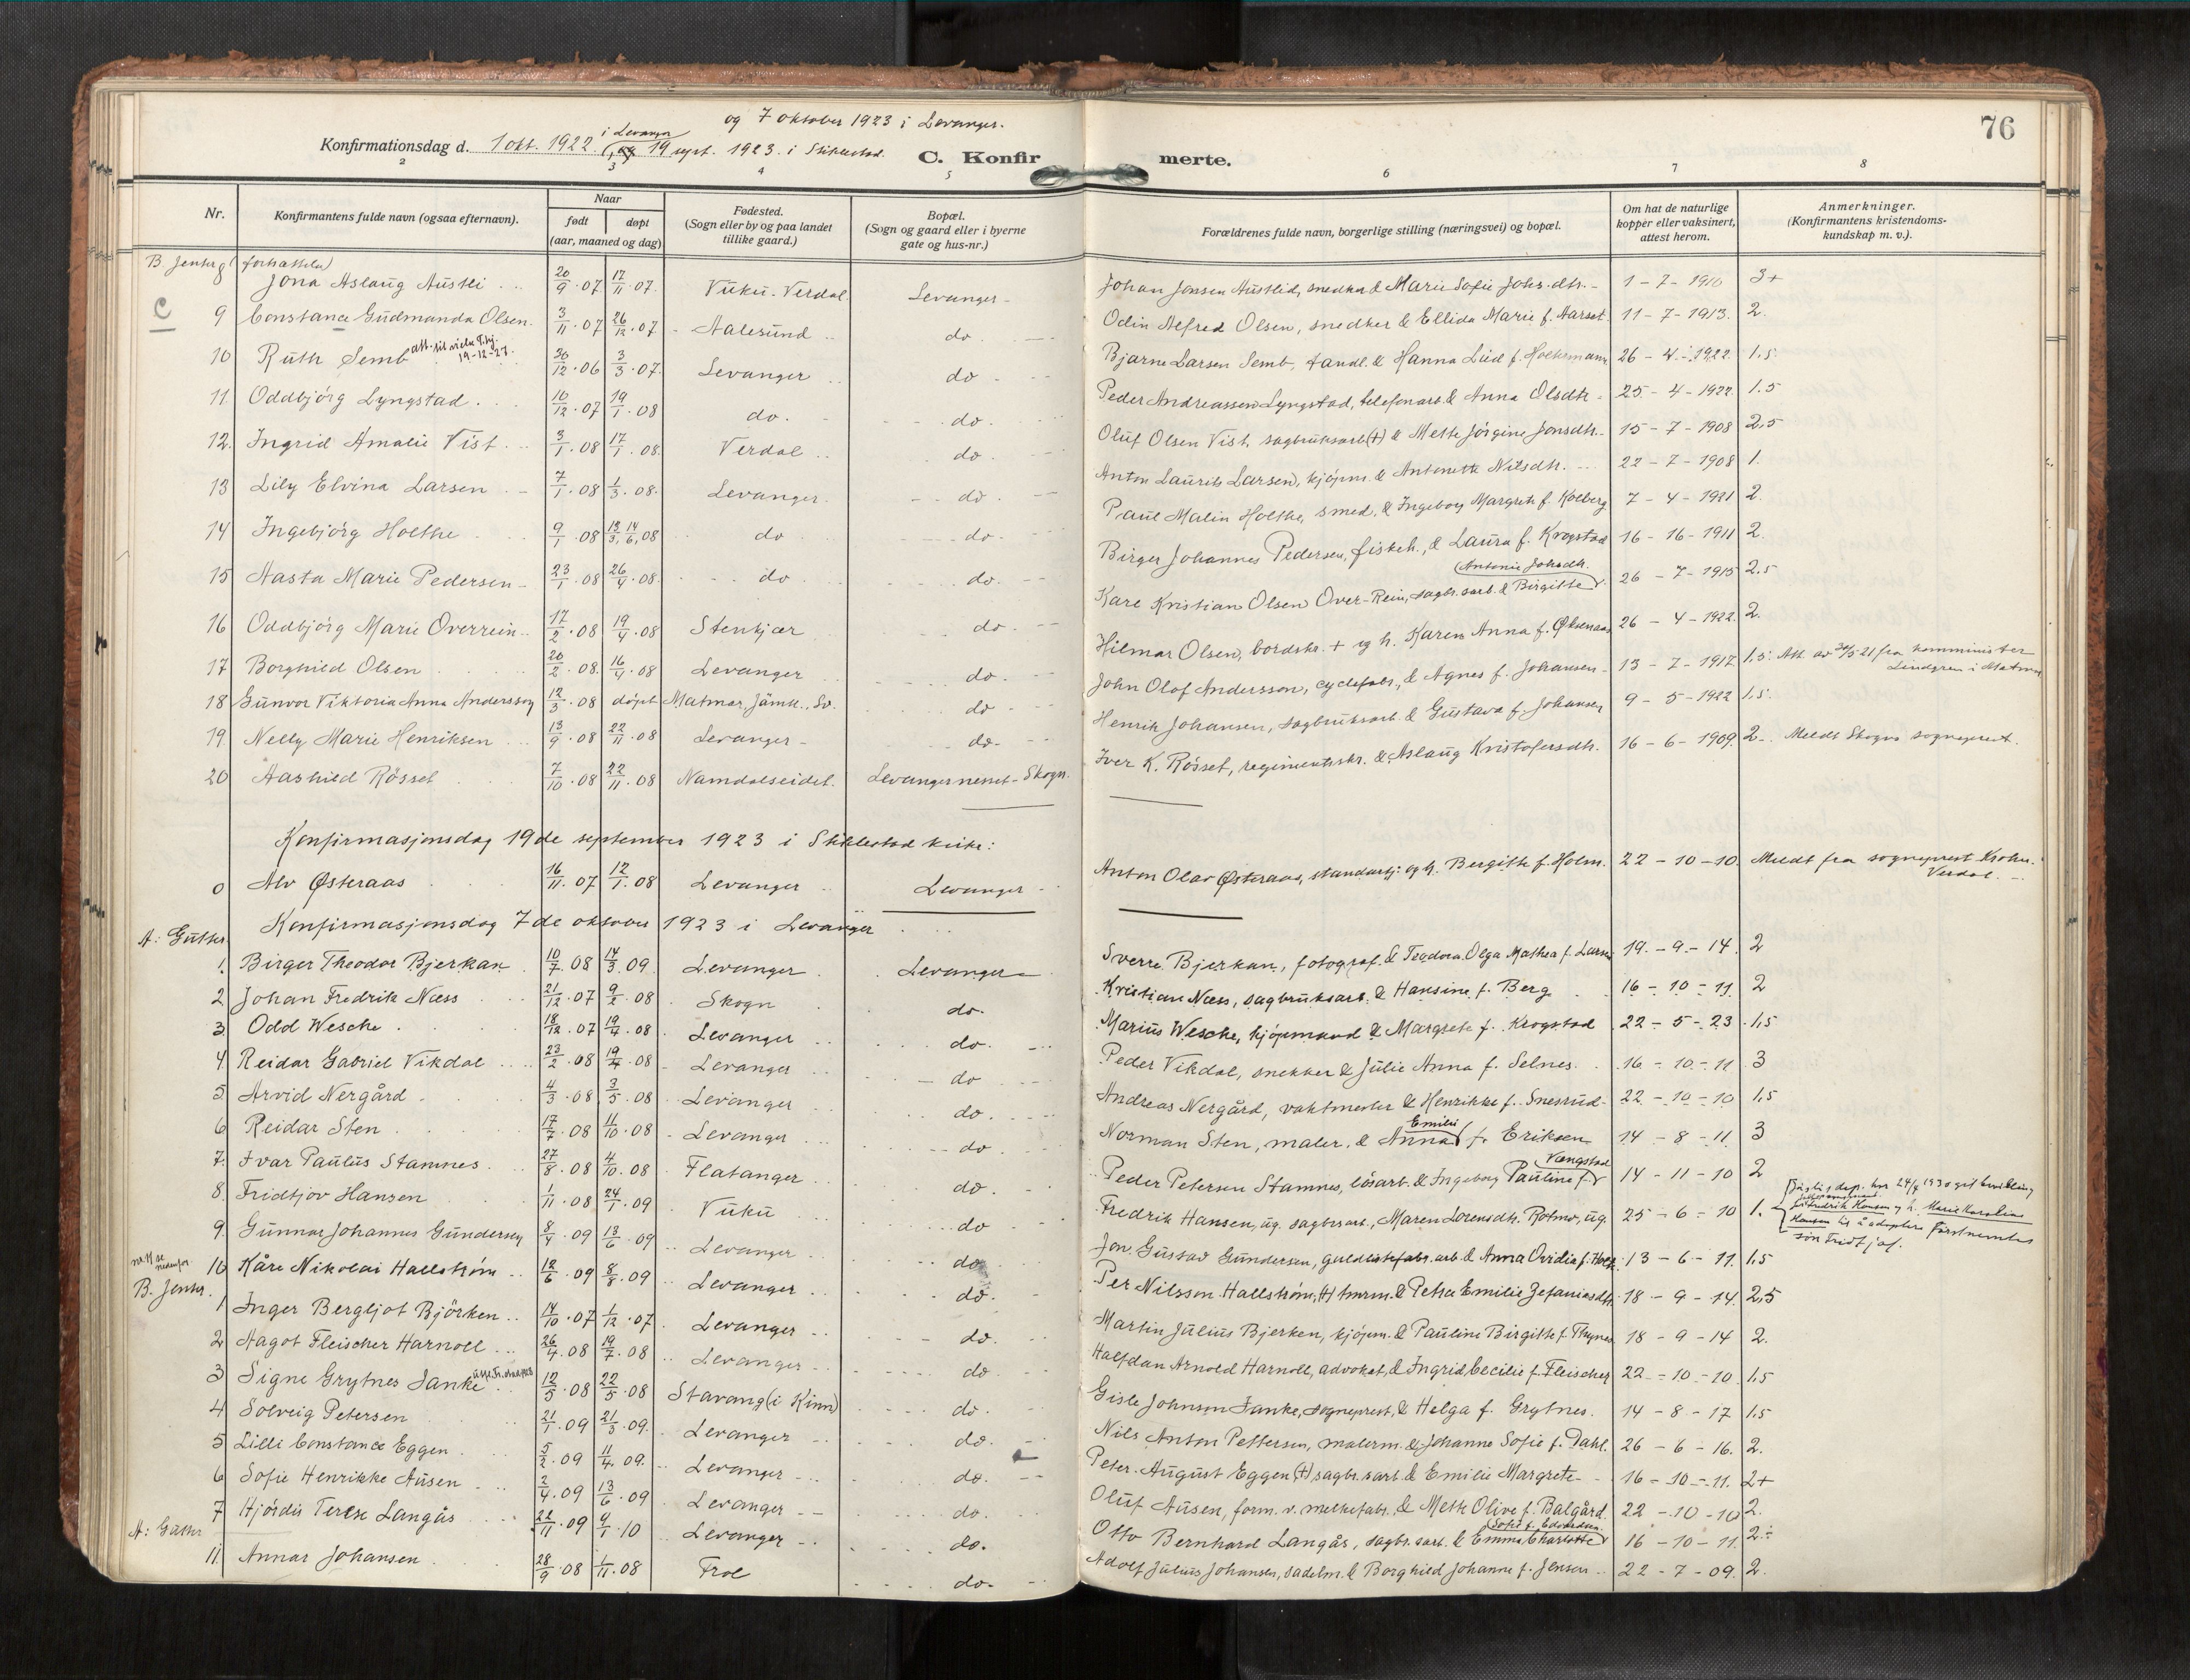 76
og 7 oktober 1923 i Levanger.
Konfirmationsdag d. 1 okt. 1922 i Levanger, og 19 sept. 1923 i Stiklestad. C. Konfirmerte.
2 3 4 5 6 7 8
Nr. Konfirmantens fulde navn (ogsaa efternavn). Naar født døpt (aar, maaned og dag) Fødested. (Sogn eller by og paa landet tillike gaard.) Bopæl. (Sogn og gaard eller i byerne gate og hus-nr.) Forældrenes fulde navn, borgerlige stilling (næringsvei) og bopæl. Om hat de naturlige kopper eller vaksinert, attest herom. Anmerkninger. (Konfirmantens kristendoms-kundskap m. v.).
B Jenter (fortsættelse)
8 Jona Aslaug Austli 20/9.07 17/11.07. Vuku. Verdal Levanger Johan Jonsen Austlid, snedker & Marie Sofie Johs.dtr. 1-7-1910 3+
C
9 Constance Gudmanda Olsen. 3/11.07 26/12.07 Aalesund do. Odin Alfred Olsen, snedker & Ellida Marie f. Aarset. 11-7-1913. 2.
10 Ruth Semb att. til vielse T.hj. 19-12-27. 30/12.06 3/3.07. Levanger do Bjarne Larsen Semb, tandl. & Hanna Lud f. Holtermann 26-4-1922 1.5
11. Oddbjörg Lyngstad. 10/12.07 19/1.08 do. do. Peder Andreassen Lyngstad, telefonarb. & Anna Olsdtr 25-4-1922 1.5
12. Ingrid Amalie Vist 3/1.08 17/1.08. Verdal do. Oluf Olsen Vist, sagbruksarb (+) & Mette Jörgine Jonsdtr. 15-7-1908 2,5
13 Lily Elvina Larsen 7/1.08 1/3.08. Levanger. do. Anton Laurits Larsen, kjöpm. & Antonette Nilsdtr. 22-7-1908 1.
14 Ingebjörg Holthe 9/1.08 13/3, 14/6, 08 do do. Paul Malin Holthe, smed, & Ingeborg Margrete f. Kolberg 7-4-1921 2.
15 Aasta Marie Pedersen 23/1.08 26/4.08. do do. Birger Johannes Pedersen, fiskeh., & Laura f. Krogstad 16-16-1911 2.
16 Oddbjörg Marie Overrein 17/2.08 19/4.08 Stenkjær do. Kare Kristian Olsen Over-Rein, sagbr.sarb. & Birgitte Antonie Johsdtr. 26-7-1915 2.5
17 Borghild Olsen 20/2.08. 16/4.08 Levanger do. Hilmar Olsen, bordskr. + og h. Karen Anna f. Øksenaas 26-4-1922. 2.
18 Gunvor Viktoria Anna Andersson 12/3.08 döpt Matmar, Jämtl., Sv. do John Olof Andersson, cyclefabr., & Agnes f. Johansen 13-7-1917 1.5. Att. av 30/5-21 fra komminister Lindgren i Matmar
19 Nelly Marie Henriksen 13/9.08 22/11.08 Levanger do. Henrik Johansen, sagbruksarb. & Gustava f. Johansen 9-5-1922 1,5.
20 Aashild Rösset 7/10.08 22/11.08 Namdalseidet. Levangernesset - Skogn. Iver K. Rösset, regimentsskr. & Aslaug Kristofersdtr. 16-6-1909. 2. Meldt Skogns sogneprest.
Konfirmasjonsdag 19de september 1923 i Stiklestad kirke:
0 Alv Østeraas 16/11.07 12/1.08 Levanger Levanger Anton Olav Østeraas, standartj. og h. Bergitte f. Holm. 22-10-10. Meldt fra sogneprest Krohn. Verdal.
Konfirmasjonsdag 7de oktober 1923 i Levanger
A: Gutter.
1. Birger Theodor Bjerkan 10/7.08 14/3.09. Levanger Levanger Sverre Bjerkan, fotograf. & Teodora Olga Mathea f. Larsen 19.-9-14. 2
2. Johan Fredrik Næss 21/12.07 9/2.08 Skogn do. Kristian Næss, sagbruksarb. & Hansine f. Berg 16-10-11. 2
3 Odd Wesche. 18/12.07 19/4.08 Levanger do. Marius Wesche, kjöpmand & Margrete f. Krogstad 22-5-23 1,5
4. Reidar Gabriel Vikdal 23/2.08 19/4.08 Levanger do Peder Vikdal, snekker & Julie Anna f. Selnes. 16-10-11 3
5. Arvid Nergård 4/3.08 3/5.08 Levanger do. Andreas Nergård, vaktmester & Henrikke f. Snesrud 22-10-10 1,5
6. Reidar Sten 17/7.08 11/10.08 Levanger do. Norman Sten, maler, & Anna Emilie f. Eriksen 14-8-11 3
7. Ivar Paulus Stamnes. 27/8.08 4/10.08 Flatanger do. Peder Petersen Stamnes, lösarb. & Ingeborg Pauline f. Vængstad 14-11-10 2
8. Fridtjov Hansen 1/11.08 24/1.09 Vuku do Fredrik Hansen, ug. sagbrsarb., Maren Lorensdtr. Rotmo, ug. 25-6-10 1. Justisdep. har 24/4 1930 git bevilling Fredrik Hansen og h. Marie Karoline Hansen til å adoptere førstnevntes sön Fridtjof.
9. Gunnar Johannes Gundersen 8/4.09 13/6.09 Levanger do Jon Gustav Gundersen, guldlistefabr.arb. & Anna Ovidia f. Holt. 13-6-11. 1.5
nr. 11 se nedenfor.
10 Kåre Nikolai Hallström 12/6.09 8/8.09 Levanger do. Per Nilsson Hallström, (+) murm. & Petra Emilie Zefaniasdtr. 18-9-14. 2,5
B. Jenter.
1 Inger Bergljot Björken 14/10.07 1/12.07 Levanger do. Martin Julius Bjerken, kjöpm. & Pauline Birgitte f. Thynes 18-9-14 2.
2 Aagot Fleischer Harnoll 26/4.08 19/7.08 Levanger do. Halfdan Arnold Harnoll, advokat, & Ingrid Cecilie f. Fleischer 22-10-10. 1.5
3 Signe Grytnes Janke 12/5.08 22/5.08 Stavang (i Kinn) do. Gisle Johnson Janke, sogneprest, & Helga f. Grytnes. 14-8-17 1.5
4 Solveig Petersen 21/1.09 21/3.09. Levanger do. Nils Anton Pettersen, malerm. & Johanne Sofie f. Dahl. 26-6-16. 2.
5 Lilli Constance Eggen 5/2.09 11/4.09. Levanger do. Peter August Eggen (+) sagbr.sarb. & Emilie Margrete 16-10-11. 2+
6 Sofie Henrikke Ausen 2/4.09 13/6.09 Levanger do. Oluf Ausen, form. v. melkefabr. & Mette Olive f. Balgård. 22-10-10 2.
7 Hjördis Terese Langås 22/11.09 9/1.10 Levanger do. Otto Bernhard Langås, sagbr.sarb. & Emma Charlotte Sofie f. Edvardsen. 16-10-11. 2÷
A: Gutter
11. Annar Johansen 28/9.08 1/11.08 Frol do. Adolf Julius Johansen, sadelm. & Borghild Johanne f. Jensen 22-7-09. 2.